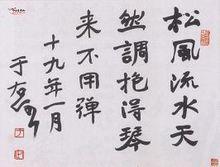 松風流水天
然調抱得琴
来不用彈
十九年一月
于右